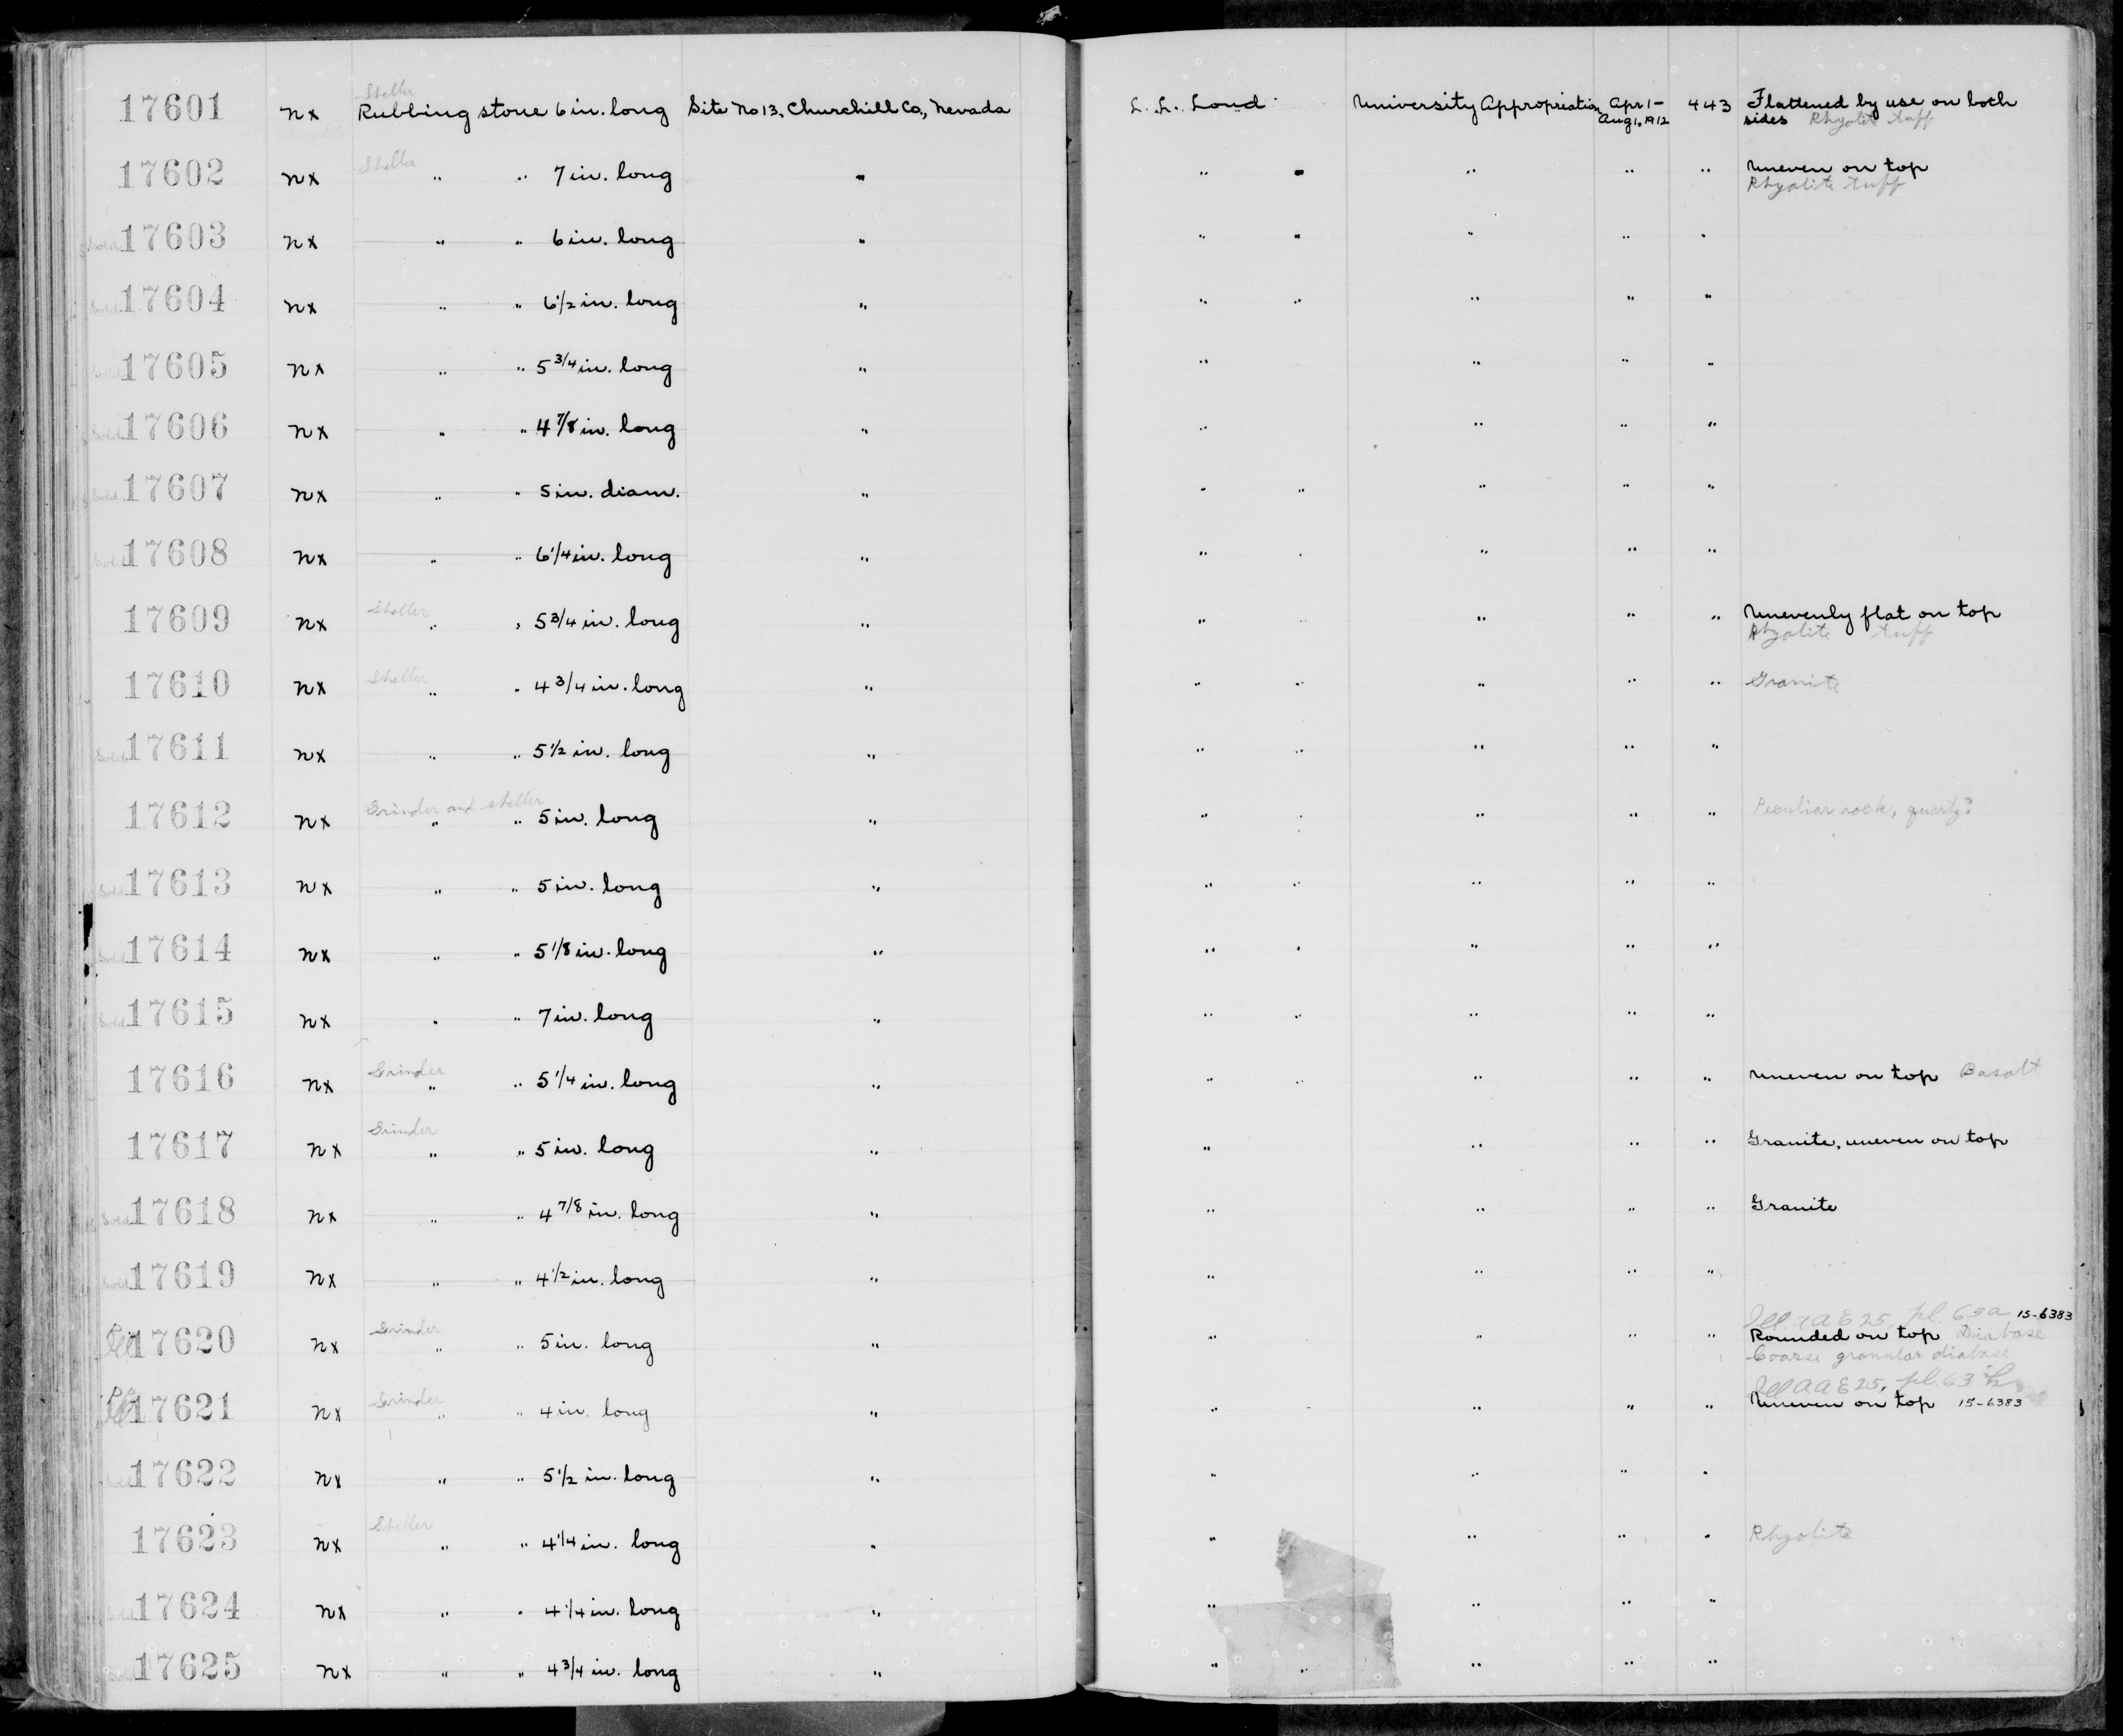 Sheller
17601 nx Rubbing stone 6 in. long Site No 13, Churchill Co., Nevada L. L. Loud University Appropriation Apr 1- Aug 1, 1912 443 Flattened by use on both
sides Rhyolite tuff
17602 nx Sheller " " 7 in. long " " " " " " Uneven on top
Rhyolite tuff
Sold 17603 nx " " 6 in. long " " " " " "
Sold 17604 nx " " 6 1/2 in. long " " " " " "
Sold 17605 nx " " 5 3/4 in. long " " " " "
Sold 17606 nx " " 4 7/8 in. long " " " " "
Sold 17607 nx " " 5 in. diam. " " " " " "
Sold 17608 nx " " 6 1/4 in. long " " " " " "
17609 nx Sheller " " 5 3/4 in. long " " " " " " Unevenly flat on top
Rhyolite tuff
17610 nx Sheller " " 4 3/4 in. long " " " " " " Granite
Sold 17611 nx " " 5 1/2 in. long " " " " " "
Grinder and sheller
17612 nx " " 5 in. long " " " " " " Peculiar rock,
Sold 17613 nx " " 5 in. long " " " " " "
Sold 17614 nx " " 5 1/8 in. long " " " " " "
Sold 17615 nx " " 7 in. long " " " " " "
17616 nx Grinder " " 5 1/4 in. long " " " " " " Uneven on top Basalt
17617 nx Grinder " " 5 in. long " " " " " Granite, uneven on top
Sold 17618 nx " " 4 7/8 in. long " " " " " Granite
Sold 17619 nx " " 4 1/2 in. long " " " " "
Ill. AAE 25, pl. 63a 15-6383
17620 nx Grinder " " 5 in. long " " " " " Rounded on top Diabase
Coarse granular diabase
Ill AAE 25, pl. 63
17621 nx Grinder " " 4 in. long " " " " " Uneven on top 15-6383
Sold 17622 nx " " 5 1/2 in. long " " " " "
17623 nx Sheller " " 4 1/4 in. long " " " " " Rhyolite
Sold 17624 nx " " 4 1/4 in. long " " " " "
Sold 17625 nx " " 4 3/4 in. long " " " " " "